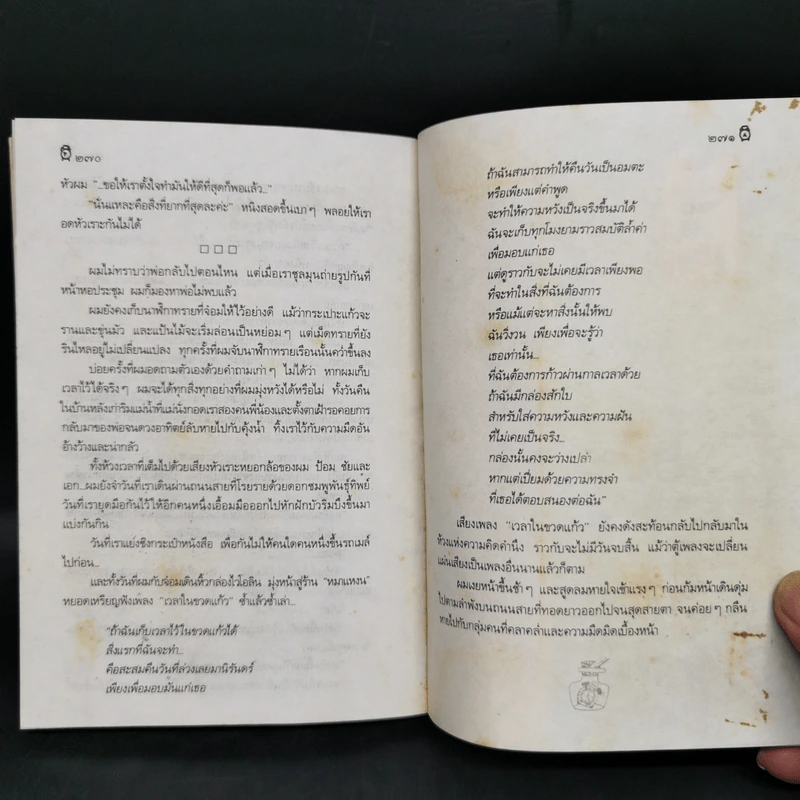 ๒๗๐
หัวผม “...ขอให้เราตั้งใจทำมันให้ดีที่สุดก็พอแล้ว...”
“นั่นแหละคือสิ่งที่ยากที่สุดละค่ะ” หนิงสอดขึ้นเบาๆ พลอยให้เรา
อดหัวเราะกันไม่ได้
□ □ □
ผมไม่ทราบว่าพ่อกลับไปตอนไหน แต่เมื่อเราชุลมุนถ่ายรูปกันที่
หน้าหอประชุม ผมก็มองหาพ่อไม่พบแล้ว
ผมยังคงเก็บนาฬิกาทรายที่จ๋อมให้ไว้อย่างดี แม้ว่ากระเปาะแก้วจะ
รานและขุ่นมัว และแป้นไม้จะเริ่มล่อนเป็นหย่อมๆ แต่เม็ดทรายที่ยัง
รินไหลอยู่ไม่เปลี่ยนแปลง ทุกครั้งที่ผมจับนาฬิกาทรายเรือนนั้นคว่ำขึ้นลง
บ่อยครั้งที่ผมอดถามตัวเองด้วยคำถามเก่าๆ ไม่ได้ว่า หากผมเก็บ
เวลาไว้ได้จริงๆ ผมจะได้ทุกสิ่งทุกอย่างที่ผมมุ่งหวังได้หรือไม่ ทั้งวันคืน
ในบ้านหลังเก่าริมแม่น้ำที่แม่นั่งกอดเราสองคนพี่น้องและตั้งตาเฝ้ารอคอยการ
กลับมาของพ่อจนดวงอาทิตย์ลับหายไปกับคุ้งน้ำ ทิ้งเราไว้กับความมืดอัน
อ้างว้างและน่ากลัว
ทั้งห้วงเวลาที่เต็มไปด้วยเสียงหัวเราะหยอกล้อของผม ป้อม ชัยและ
เอก...ผมยังจำวันที่เราเดินผ่านถนนสายที่โรยรายด้วยดอกชมพูพันธุ์ทิพย์
วันที่เรายุดมือกันไว้ให้อีกคนหนึ่งเอื้อมมือออกไปหักฝักบัวริมบึงขึ้นมา
แบ่งกันกิน
วันที่เราแย่งชิงกระเป๋าหนังสือ เพื่อกันไม่ให้คนใดคนหนึ่งขึ้นรถเมล์
ไปก่อน...
และทั้งวันที่ผมกับจ๋อมเดินหิ้วกล่องไวโอลิน มุ่งหน้าสู่ร้าน “หมาแหงน”
หยอดเหรียญฟังเพลง “เวลาในขวดแก้ว” ซ้ำแล้วซ้ำเล่า...
“ถ้าฉันเก็บเวลาไว้ในขวดแก้วได้
สิ่งแรกที่ฉันจะทำ...
คือสะสมคืนวันที่ล่วงเลยมานิรันดร์
เพียงเพื่อมอบมันแก่เธอ
๒๗๑
ถ้าฉันสามารถทำให้คืนวันเป็นอมตะ
หรือเพียงแต่คำพูด
จะทำให้ความหวังเป็นจริงขึ้นมาได้
ฉันจะเก็บทุกโมงยามราวสมบัติล้ำค่า
เพื่อมอบแก่เธอ
แต่ดูราวกับจะไม่เคยมีเวลาเพียงพอ
ที่จะทำในสิ่งที่ฉันต้องการ
หรือแม้แต่จะหาสิ่งนั้นให้พบ
ฉันวิ่งวน เพียงเพื่อจะรู้ว่า
เธอเท่านั้น...
ที่ฉันต้องการก้าวผ่านกาลเวลาด้วย
ถ้าฉันมีกล่องสักใบ
สำหรับใส่ความหวังและความฝัน
ที่ไม่เคยเป็นจริง...
กล่องนั้นคงจะว่างเปล่า
หากแต่เปี่ยมด้วยความทรงจำ
ที่เธอได้ตอบสนองต่อฉัน”
เสียงเพลง “เวลาในขวดแก้ว” ยังคงดังสะท้อนกลับไปกลับมาใน
ห้วงแห่งความคิดคำนึง ราวกับจะไม่มีวันจบสิ้น แม้ว่าตู้เพลงจะเปลี่ยน
แผ่นเสียงเป็นเพลงอื่นนานแล้วก็ตาม
ผมเงยหน้าขึ้นช้าๆ และสูดลมหายใจเข้าแรงๆ ก่อนก้มหน้าเดินดุ่ม
ไปตามลำพังบนถนนสายที่ทอดยาวออกไปจนสุดสายตา จนค่อยๆ กลืน
หายไปกับกลุ่มคนที่คลาคล่ำและความมืดมิดเบื้องหน้า